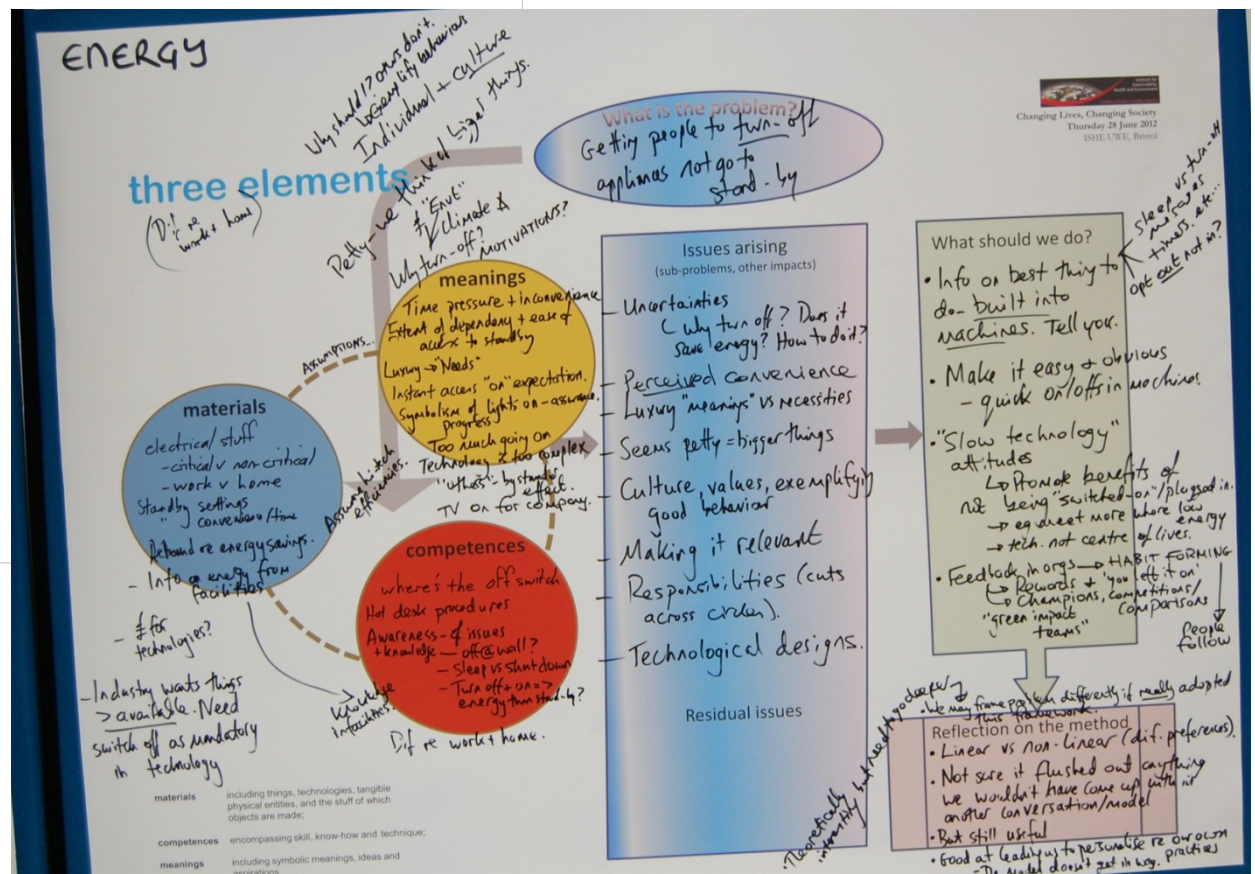 ENERGY
Why should I? Others don't.
↳ Exemplify behaviours
Individual + culture
Petty - we think of bigger things.
£ "Envt"
climate
Why turn-off? MOTIVATIONS?
three elements
(Dif re
work + home)
Institute for
Sustainability,
Health and Environment
Changing Lives, Changing Society
Thursday 28 June 2012
ISHE UWE, Bristol
What is the problem?
Getting people to turn-off
appliances not go to
stand-by
meanings
Time pressure + inconvenience
Extent of dependency + ease of
access to standby
Luxury → "Needs"
Instant access "on" expectation.
Symbolism of lights on - assurance.
progress
Too much going on
Technology is too complex
"others" - bystander
effect.
TV on for company.
ASSUMPTIONS...
materials
electrical stuff
- critical v non-critical
- work v home
Standby settings
" convenience/time
Rebound re energy savings.
- Info on energy from
facilities
- £ for
technologies?
- Industry wants things
> available. Need
switch off as mandatory
in technology
Assuming hi-tech
efficiencies.
competences
where's the off switch
Hot desk procedures
Awareness - of issues
+ knowledge - off @ wall?
- Sleep vs shutdown
- Turn off + on =>
energy than stand-by?
Knowledge
in facilities.
Dif re work + home.
Issues arising
(sub-problems, other impacts)
- Uncertainties
( Why turn off? Does it
save energy? How to do it?
- Perceived convenience
- Luxury "meanings" vs necessities
- Seems petty = bigger things
- Culture, values, exemplifying
good behavior
- Making it relevant
- Responsibilities (cuts
across circles).
- Technological designs.
Residual issues
What should we do?
• Info on best thing to
do - built into
machines. Tell you.
sleep vs turn-off
measures
timers etc...
opt out not in?
• Make it easy + obvious
- quick on/offs in machines.
• "Slow technology"
attitudes
↳ Promote benefits of
not being "switched-on"/plugged in.
→ eg meet more where low
energy
→ tech. not centre of lives.
• Feedback in orgs → HABIT FORMING
↳ Rewards + 'you left it on'
↳ Champions, competitions/
comparisons
"green impact
teams"
People
follow
• Theoretically
interesting but need to go deeper
• We may frame problem differently if really adopted
this framework.
Reflection on the method
• Linear vs non-linear (dif. preferences).
• Not sure it flushed out anything
we wouldn't have come up with in
another conversation/model
• But still useful
• Good at leading us to personalise re our own
practices
- The model doesn't get in way.
materials including things, technologies, tangible
physical entities, and the stuff of which
objects are made;
competences encompassing skill, know-how and technique;
meanings including symbolic meanings, ideas and
aspirations